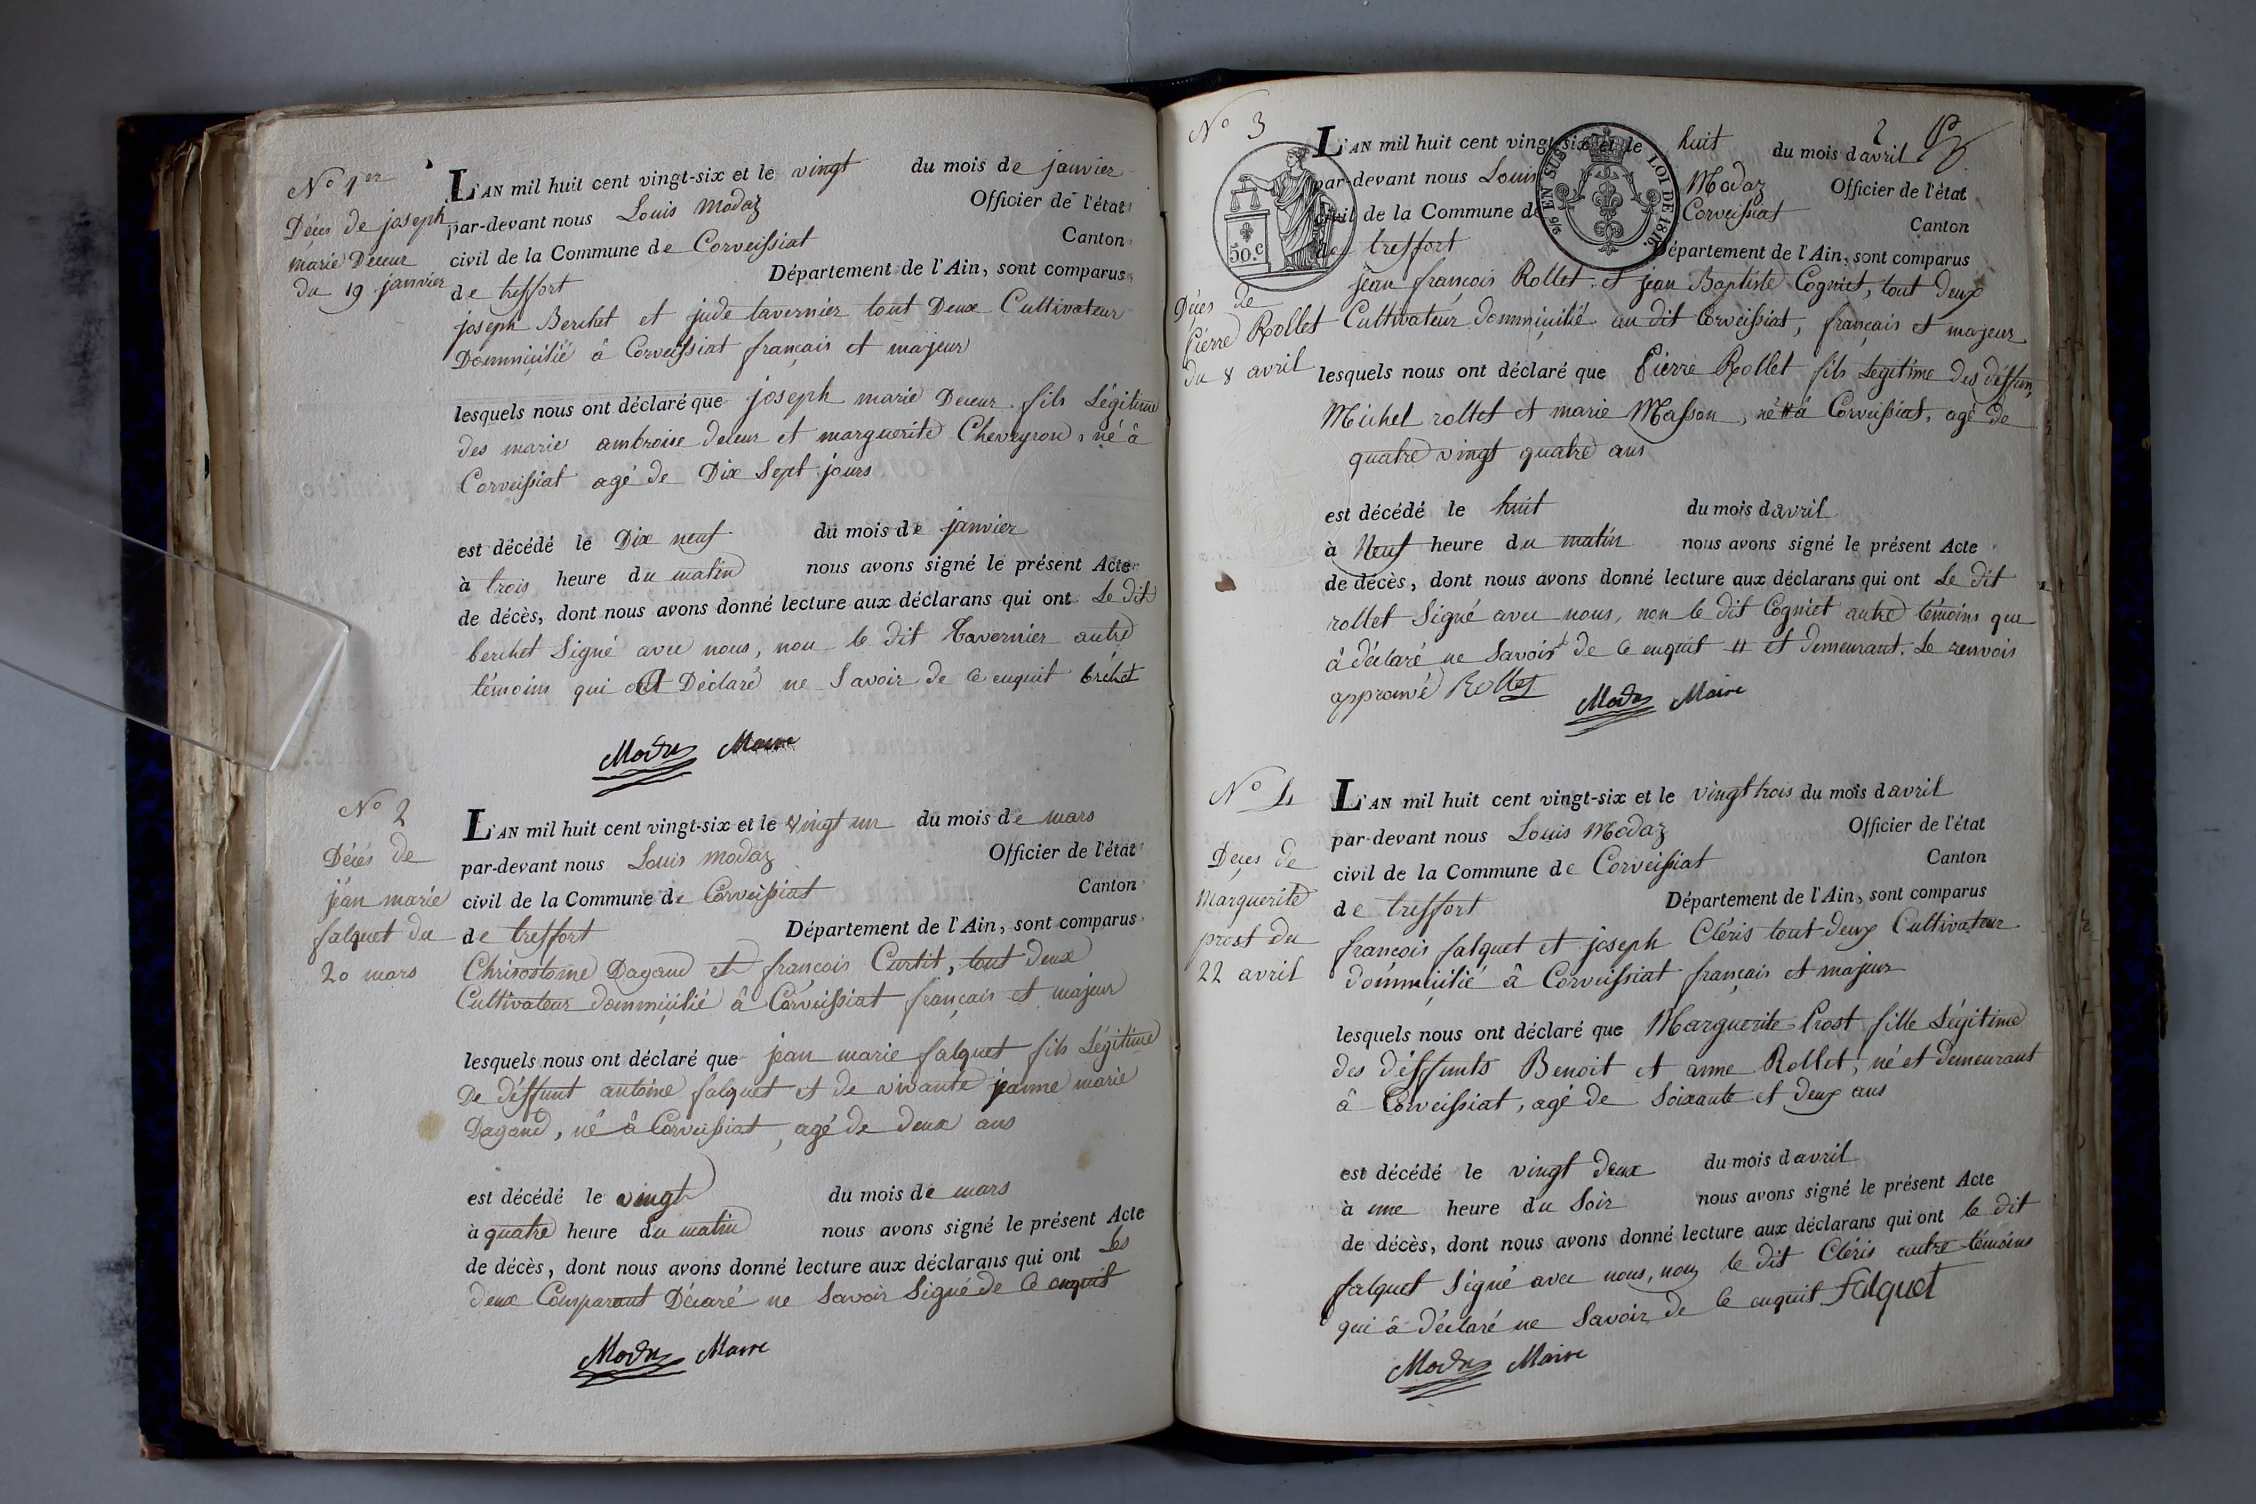 N° 1er
Décès de joseph
marie Deceur
du 19 janvier
L'AN mil huit cent vingt-six et le vingt du mois de janvier
par-devant nous Louis Modaz Officier de l'état
civil de la Commune de Corveissiat Canton
de treffort Département de l'Ain, sont comparus
joseph Berchet et jude tavernier tout Deux Cultivateur
Dommicilié à Corveissiat français et majeur
lesquels nous ont déclaré que joseph marie Deceur fils Légitime
des marie ambroise deceur et marguerite Cheveyron, né à
Corveissiat agé de Dix Sept jours
est décédé le Dix neuf du mois de janvier
à trois heure du matin nous avons signé le présent Acte
de décès, dont nous avons donné lecture aux déclarans qui ont Le dit
berchet Signé avec nous, non le dit tavernier autre
témoins qui a Déclaré ne Savoir de ce enquit brchet
Modaz Maire
N° 2
Décès de
jean marie
falquet du
20 mars
L'AN mil huit cent vingt-six et le vingt un du mois de mars
par-devant nous Louis modaz Officier de l'état
civil de la Commune de Corveissiat Canton
de treffort Département de l'Ain, sont comparus
Chrisostome Dagand et françois Curtit, tout deux
Cultivateur dommicilié à Corveissiat français et majeur
lesquels nous ont déclaré que jean marie falquet fils Légitime
De déffunt antoine falquet et de vivante jeanne marie
Dagand, né à Corveissiat, agé de deux ans
est décédé le vingt du mois de mars
à quatre heure du matin nous avons signé le présent Acte
de décès, dont nous avons donné lecture aux déclarans qui ont Les
deux Comparant Décaré ne Savoir Signé de ce enquit
Modaz Maire
2
N° 3
50.c
96 EN SUS LOI DE 1816.
Décès de
Pierre Rollet
du 8 avril
L'AN mil huit cent vingt-six et le huit du mois d'avril
par-devant nous Louis Modaz Officier de l'état
civil de la Commune de Corveissiat Canton
de treffort Département de l'Ain, sont comparus
jean françois Rollet et jean Baptiste Cogniet, tout deux
Cultivateur dommicilié au dit Corveissiat, français et majeur
lesquels nous ont déclaré que Pierre Rollet fils Légitime des deffun,
Michel rollet et marie Masson, né # à Corveissiat, agé de
quatre vingt quatre ans
est décédé le huit du mois d'avril
à Neuf heure du matin nous avons signé le présent Acte
de décès, dont nous avons donné lecture aux déclarans qui ont Le dit
rollet Signé avec nous, non le dit Cogniet autre témoins qui
à déclaré ne Savoir de ce enquit # et demeurant. Le renvois
approuvé Rollet
Modaz Maire
N° 4
Décès de
Marguerite
prost du
22 avril
L'AN mil huit cent vingt-six et le vingt trois du mois d'avril
par-devant nous Louis Modaz Officier de l'état
civil de la Commune de Corveissiat Canton
de treffort Département de l'Ain, sont comparus
françois falquet et joseph Cléris tout deux Cultivateur
dommicilié à Corveissiat français et majeur
lesquels nous ont déclaré que Marguerite Prost fille Légitime
des déffunts Benoit et anne Rollet, né et demeurant
à Corveissiat, agé de Soixante et deux ans
est décédé le vingt deux du mois d'avril
à une heure du Soir nous avons signé le présent Acte
de décès, dont nous avons donné lecture aux déclarans qui ont le dit
falquet Signé avec nous, non le dit Cléris autre témoins
qui à déclaré ne Savoir de ce enquit falquet
Modaz Maire